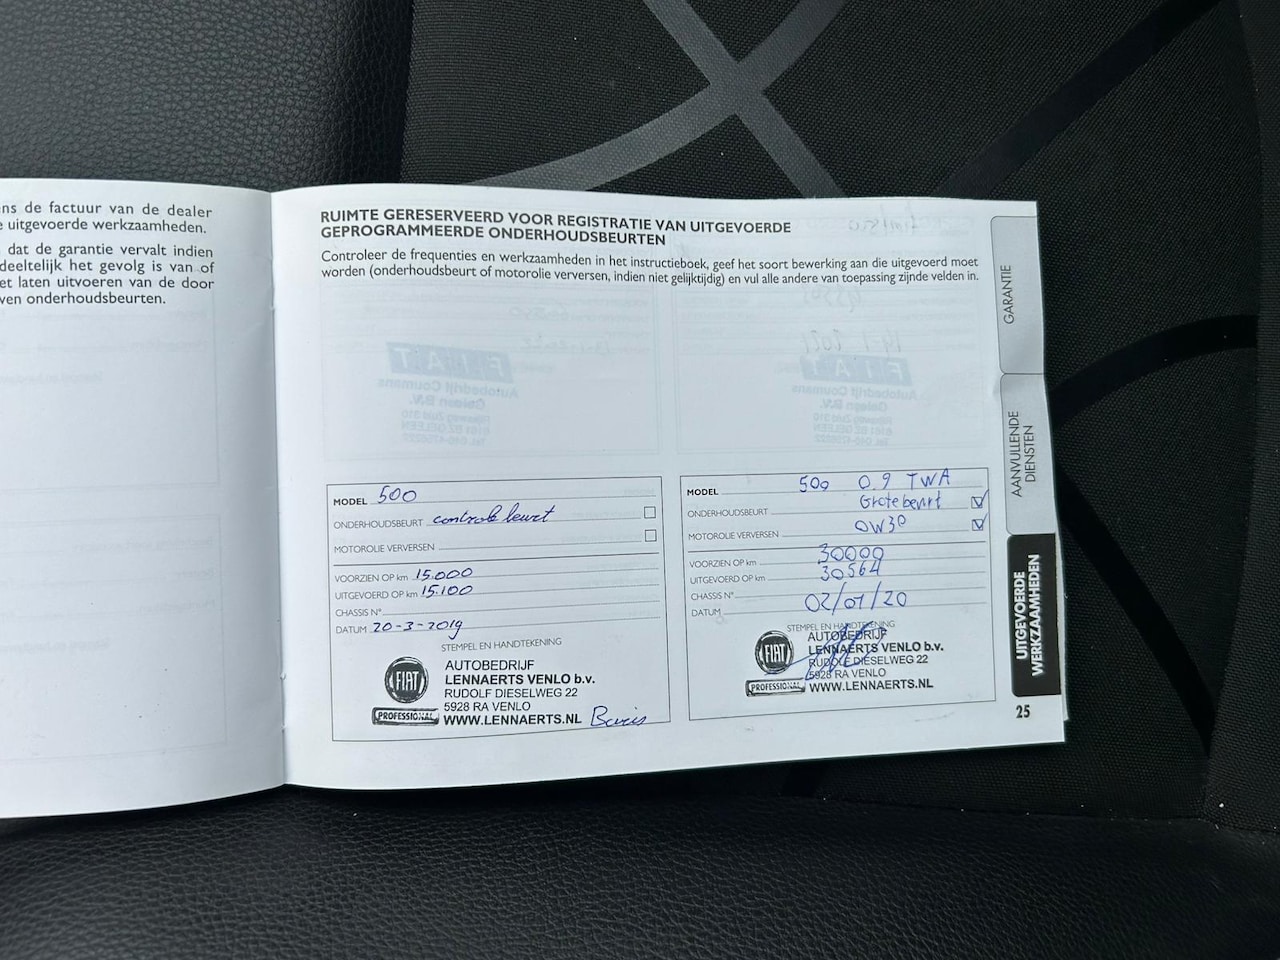 ns de factuur van de dealer
uitgevoerde werkzaamheden.
dat de garantie vervalt indien
deeltelijk het gevolg is van of
et laten uitvoeren van de door
ven onderhoudsbeurten.
RUIMTE GERESERVEERD VOOR REGISTRATIE VAN UITGEVOERDE
GEPROGRAMMEERDE ONDERHOUDSBEURTEN
Controleer de frequenties en werkzaamheden in het instructieboek, geef het soort bewerking aan die uitgevoerd moet
worden (onderhoudsbeurt of motorolie verversen, indien niet gelijktijdig) en vul alle andere van toepassing zijnde velden in.
MODEL 500
ONDERHOUDSBEURT controle beurt
MOTOROLIE VERVERSEN
VOORZIEN OP km 15.000
UITGEVOERD OP km 15.100
CHASSIS N°
DATUM 20-3-2019
STEMPEL EN HANDTEKENING
FIAT
PROFESSIONAL
AUTOBEDRIJF
LENNAERTS VENLO b.v.
RUDOLF DIESELWEG 22
5928 RA VENLO
WWW.LENNAERTS.NL Boris
MODEL 500 0.9 TWA
ONDERHOUDSBEURT Grote beurt
MOTOROLIE VERVERSEN 0W30
VOORZIEN OP km 30000
UITGEVOERD OP km 30564
CHASSIS N°
DATUM 02/01/20
STEMPEL EN HANDTEKENING
FIAT
PROFESSIONAL
AUTOBEDRIJF
LENNAERTS VENLO b.v.
RUDOLF DIESELWEG 22
5928 RA VENLO
WWW.LENNAERTS.NL
GARANTIE
AANVULLENDE
DIENSTEN
UITGEVOERDE
WERKZAAMHEDEN
25